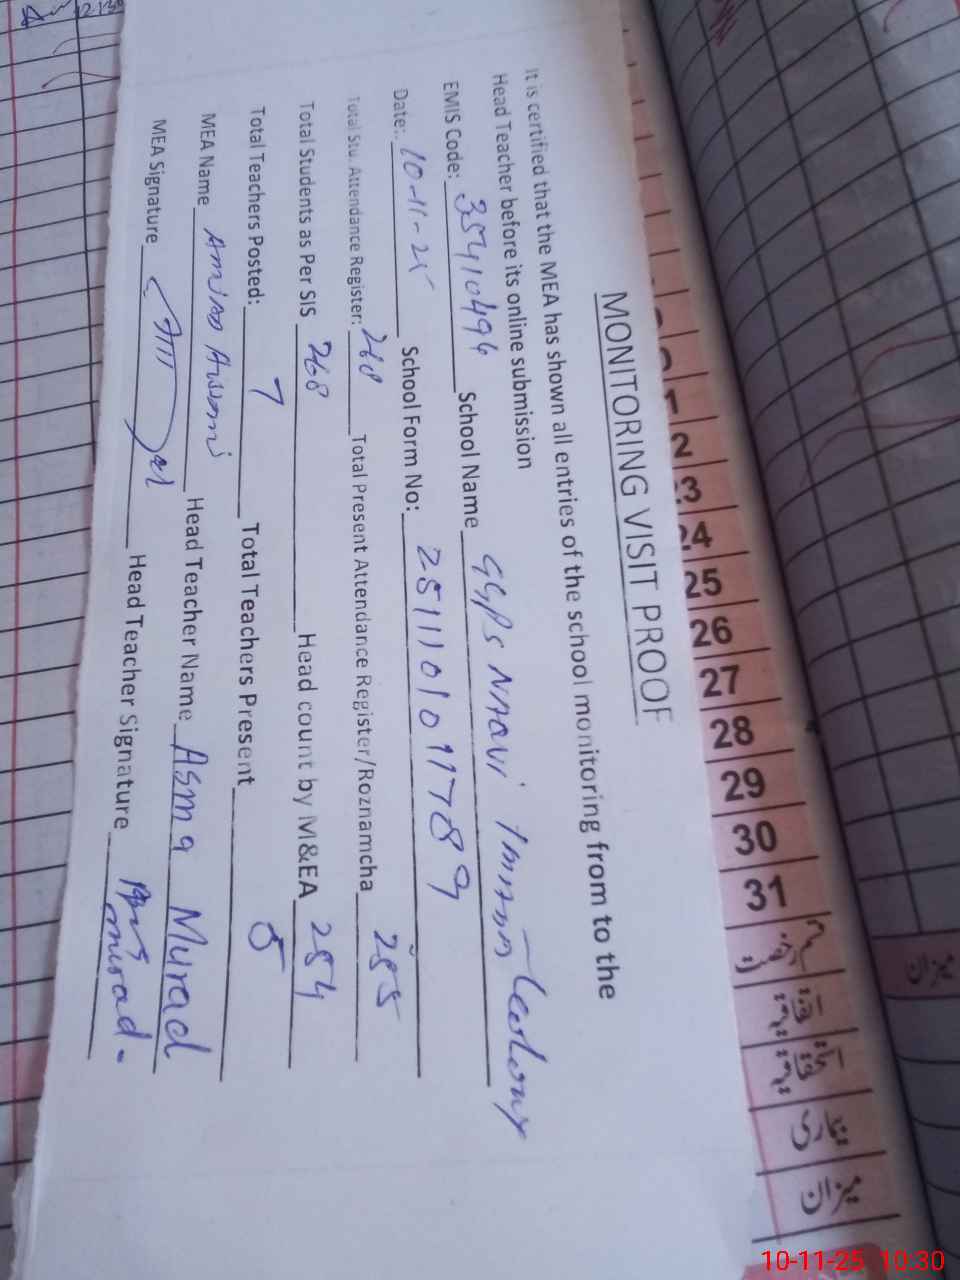 MONITORING VISIT PROOF
It is certified that the MEA has shown all entries of the school monitoring from to the
Head Teacher before its online submission
EMIS Code: 35410494 School Name GGPS Naqvi Imam Colony
Date: 10-11-25 School Form No: 251110101789
Total Stu. Attendance Register: 268 Total Present Attendance Register/Roznamcha 255
Total Students as Per SIS 268 Head count by M&EA 254
Total Teachers Posted: 7 Total Teachers Present 5
MEA Name Head Teacher Name Asma Murad
MEA Signature Head Teacher Signature murad.
24
25
26
27
28
29
30
31
میزان
میزان
10-11-25 10:30